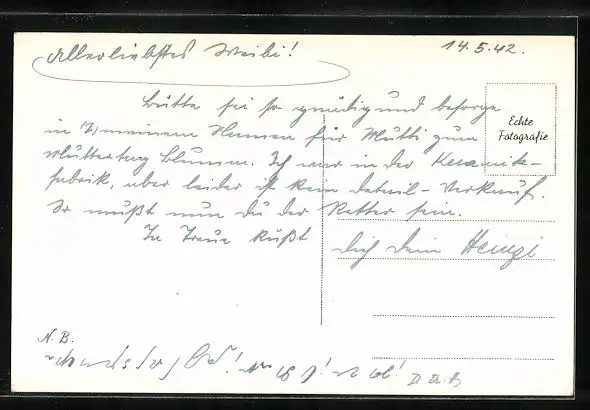 Allerliebstes Weibi!
14.5.42.
Echte
Fotografie
Bitte sei so gnädig und besorge
in meinem Namen für Mutti zum
Muttertag Blumen. Ich war in der Keramik-
fabrik, aber leider ist kein Detail-Verkauf.
So mußt nun du der Retter sein.
In Treue küßt Dich Dein Heinzi
N.B.